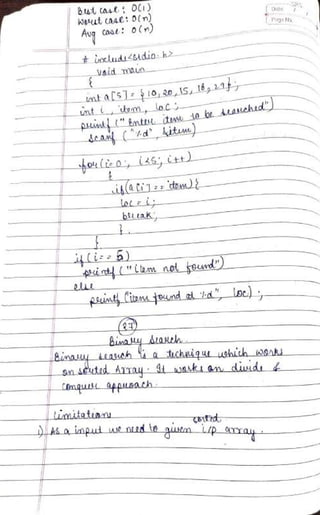 Best case : O(1)
Worst case : O(n)
Avg case : O(n)
Date
Page No.
# include<stdio.h>
void main
{
int a[5] = {10, 20, 15, 18, 27};
int i, item, loc ;
printf ("Enter item to be searched")
scanf ("%d", &item)
for (i=0 ; i<5 ; i++)
{
if (a[i] == item) {
loc = i;
break;
}
}
if (i == 5)
printf ("item not found")
else
printf ("item found at %d", loc) ;
Binary Search
Binary search is a technique which works
on sorted Array. It works on divide &
conquer approach.
Limitations
sorted
1) As a input we need to given i/p array.